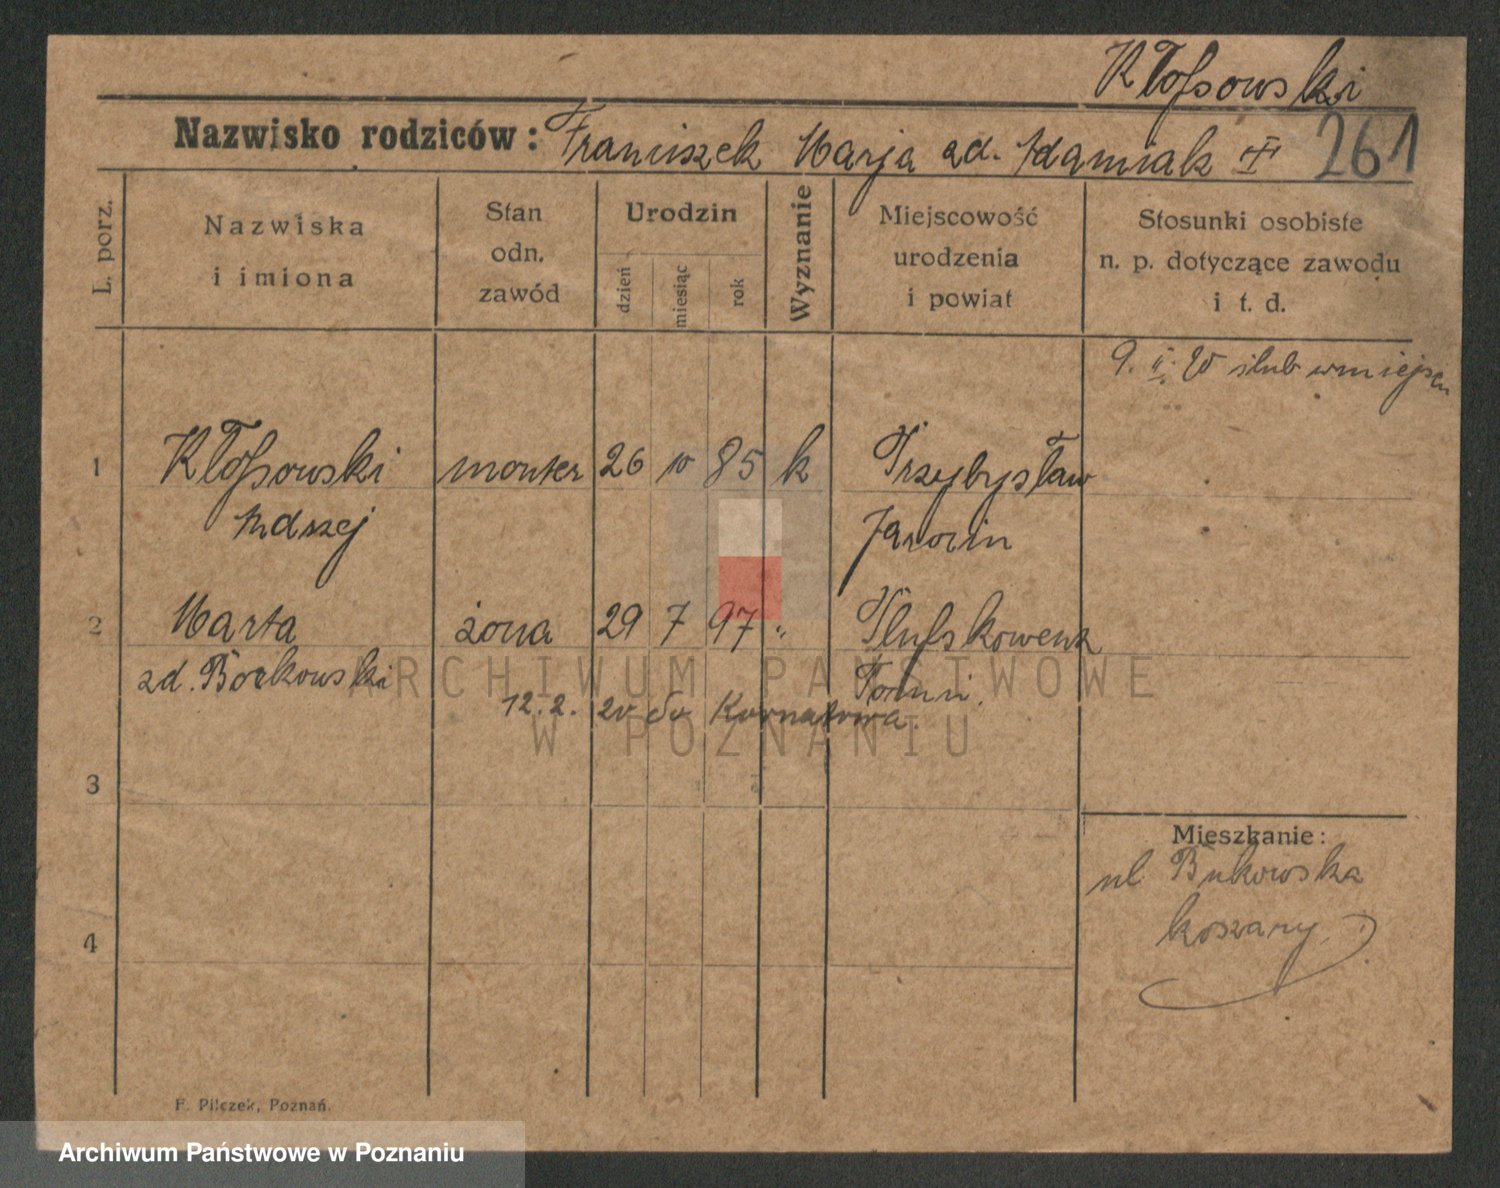 Kłossowski
Nazwisko rodziców: Franciszek Marja zd. Adamiak
261
L. porz.
Nazwiska
i imiona
Stan
odn.
zawód
Urodzin
dzień
miesiąc
rok
Wyznanie
Miejscowość
urodzenia
i powiat
Stosunki osobiste
n. p. dotyczące zawodu
i t. d.
9. II. 20 ślub w miejscu
1 Kłossowski monter 26 10 85 k Przybysław
Andrzej Jarocin
2 Marta żona 29 7 97 "
zd. Borkowski Toruń
12. 2. 20 do Kornatowa.
3
4
Mieszkanie:
ul Bukowska
koszary
F. Pilczek, Poznań.
ARCHIWUM PAŃSTWOWE
W POZNANIU
Archiwum Państwowe w Poznaniu